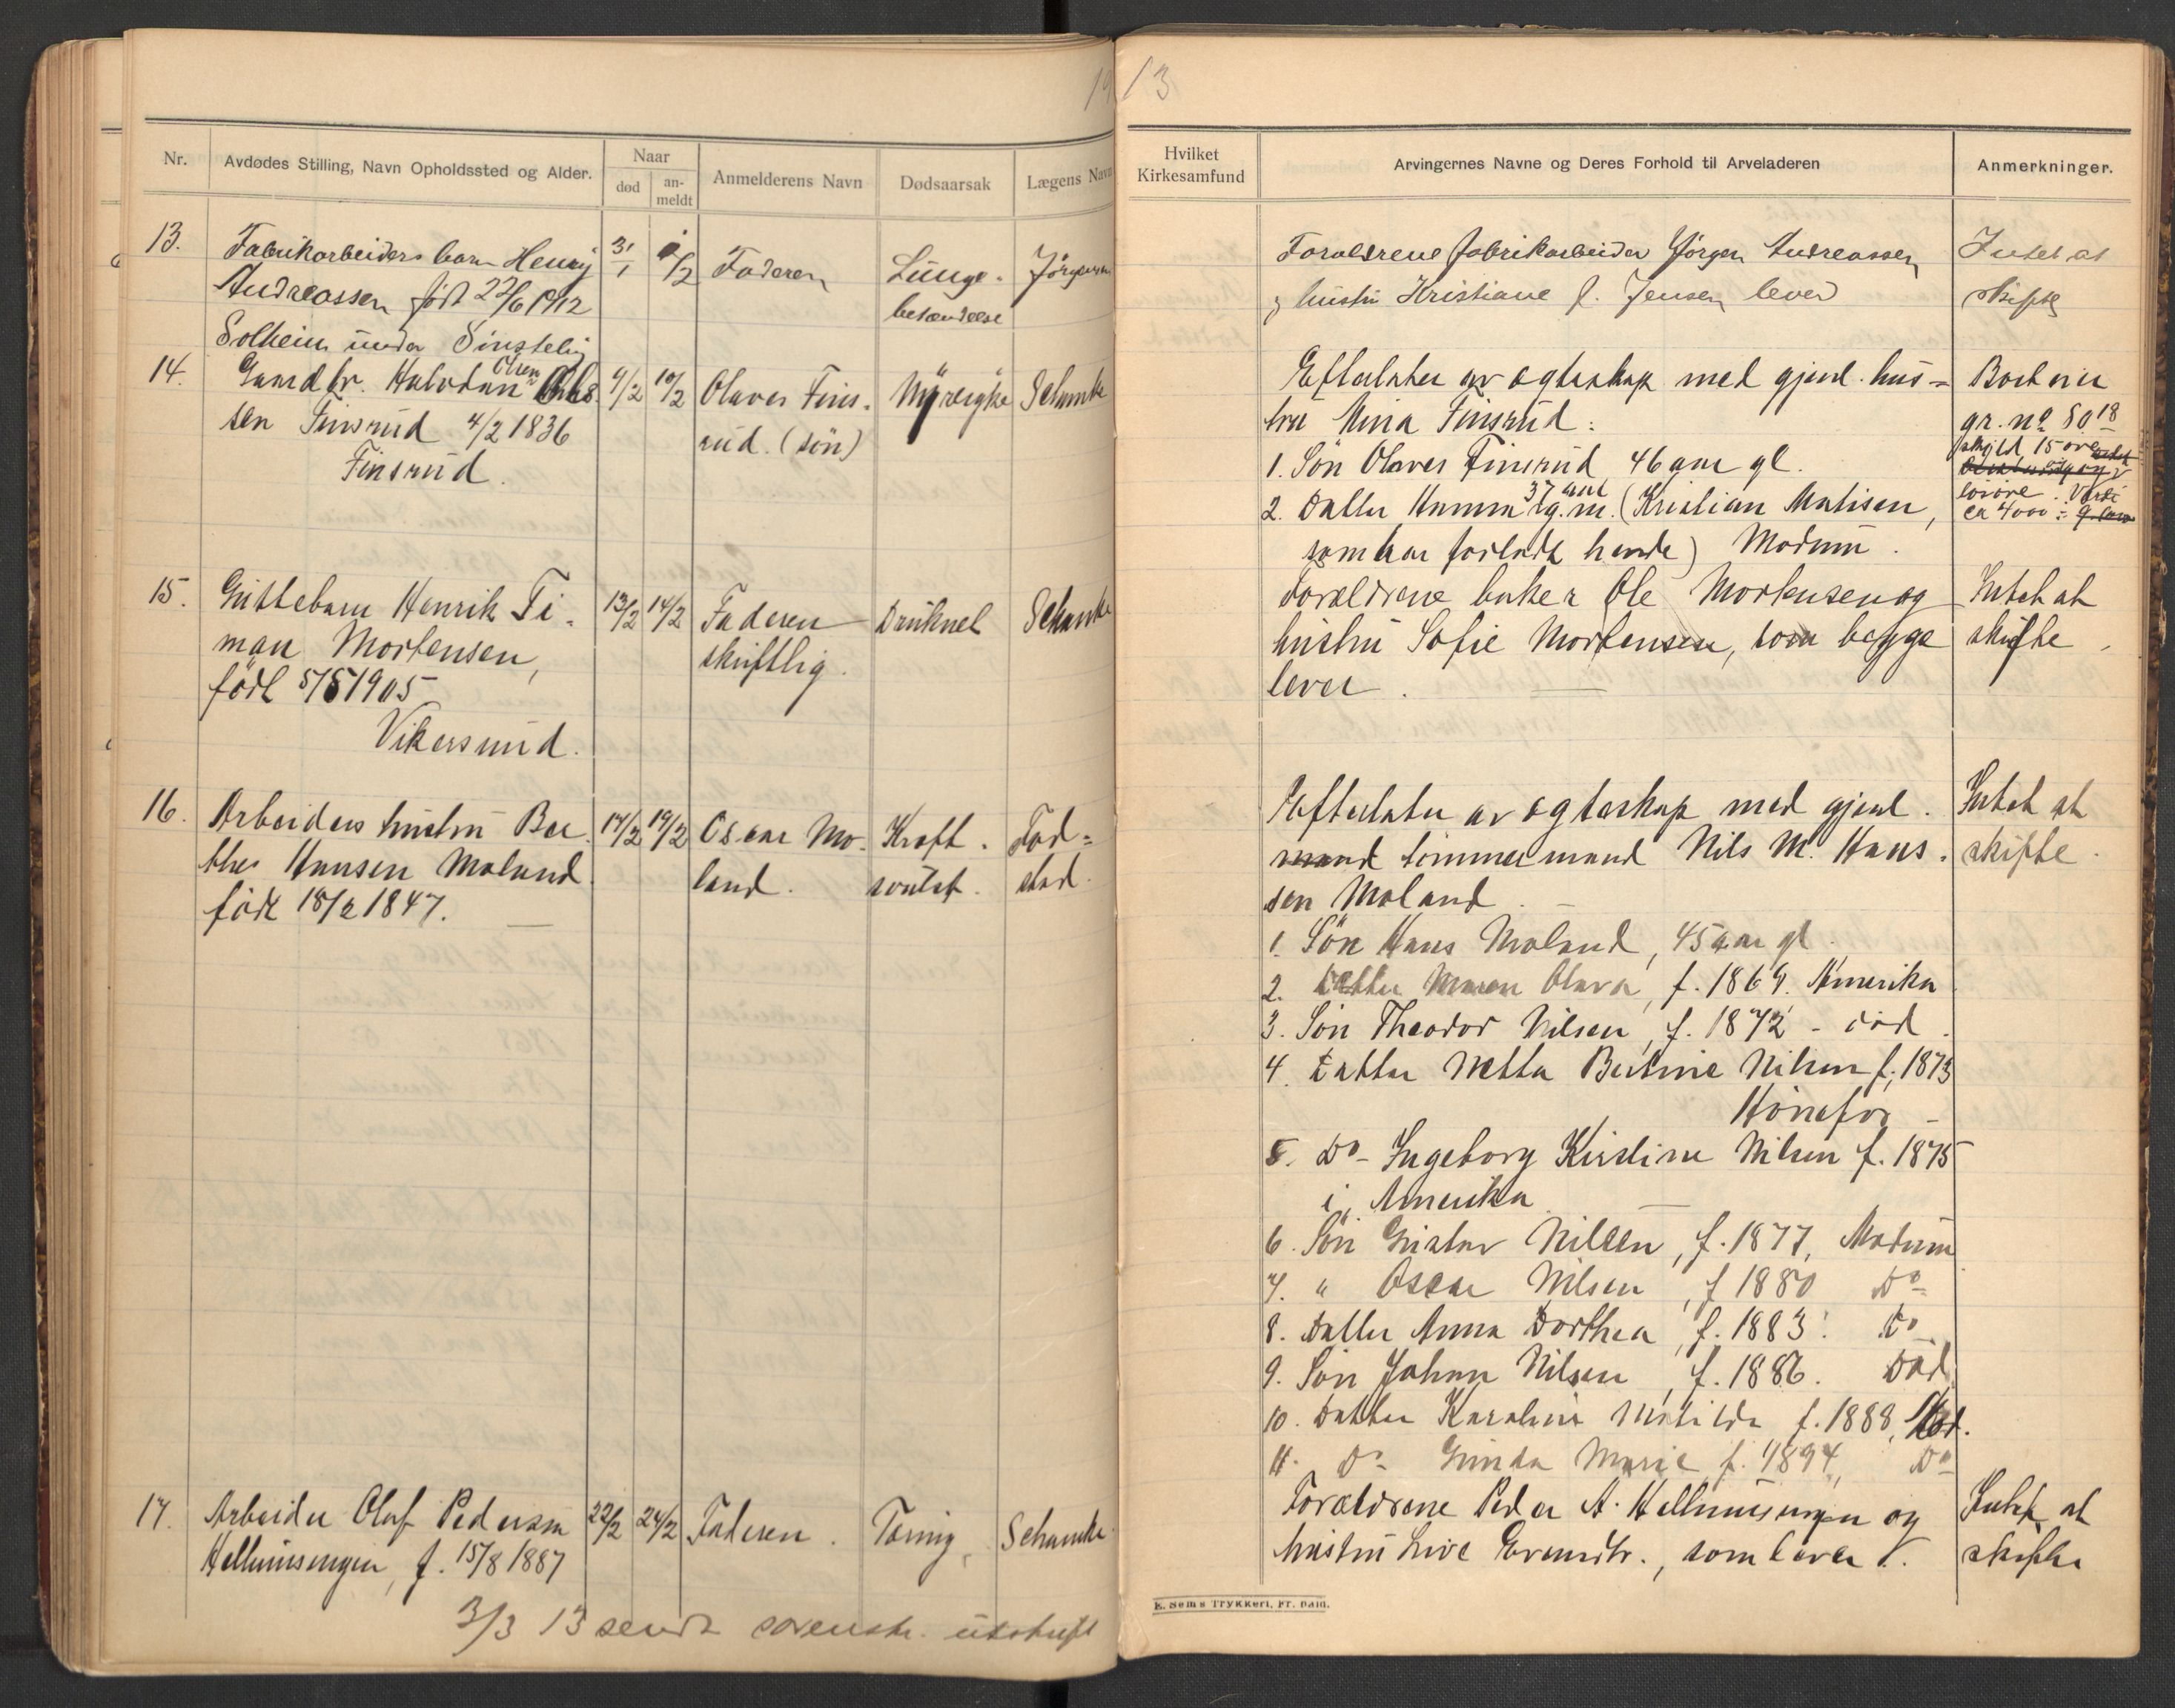 19
13
Nr.
Avdødes Stilling, Navn Opholdssted og Alder.
Naar
død
an-
meldt
Anmelderens Navn
Dødsaarsak
Lægens Navn
Hvilket
Kirkesamfund
Arvingernes Navne og Deres Forhold til Arveladeren
Anmerkninger.
13.
Fabrikarbeiders barn Henry
Andreassen født 22/6 1912
Solheim under
31/1
1/2
Faderen
Lunge-
betændelse
Forældrene fabrikarbeider Jørgen Andreassen
og hustru Kristiane f. Jensen lever
Intet at
skifte
14.
Gaardbr. Halvdan Olsen
Finsrud 4/2 1836
Finsrud.
9/2
10/2
Olaves Fins-
rud. (søn)
Nyresyke
Schanke
Efterlater av egteskap med gjenl. hus-
tru Mina Finsrud:
1. Søn Olaves Finsrud 46 aar gl.
2. Datter Hanna 37 aar g.m. (Kristian Matisen,
som har forladt hende) Modum.
gr. no 80 18
skyld 15 øre
Værdi
ca 4000
15.
Guttebarn Henrik Ti-
man Mortensen,
født 5/5 1905
Vikersund.
13/2
14/2
Faderen
skriftlig.
Druknet
Schanke
Forældrene baker Ole Mortensen og
hustru Sofie Mortensen, som begge
lever.
Intet at
skifte.
16.
Arbeiders hustru Ber-
the Hansen Moland
født 18/2 1847.
17/2
19/2
Oscar Mo-
land.
Kræft-
svulst.
Fod-
stad.
Efterlater av egteskap med gjenl.
mand tømmermand Nils M. Hans-
sen Moland.
1. Søn Hans Moland, 45 aar gl.
2. Datter Maren Olava, f. 1869. Amerika
3. Søn Theodor Nilsen, f. 1872 - død.
4. Datter Netta Bertine Nilsen f. 1873
Hønefos
5. Do- Ingeborg Kirstine Nilsen f. 1875
i Amerika
6. Søn Gustav Nilsen, f. 1877, Modum
7. " Oscar Nilsen, f 1880 Do-
8. Datter Anna Dorthea, f. 1883. Do
9. Søn Johan Nilsen, f. 1886. Død
10. Datter Karoline Matilde f. 1888, Mod.
11. Do- Gunda Marie f. 1894, Do-
Intet at
skifte.
17.
Arbeider Olaf Pedersen
Hellumsengen, f. 15/8 1887
22/2
24/2
Faderen.
Tæring,
Schanke.
Forældrene Peder A. Hellumsengen og
hustru Live Evensdtr., som lever.
Intet at
skifte
3/3 13 sendt utskrift
E. Sems Trykkeri, Fr. Hald.